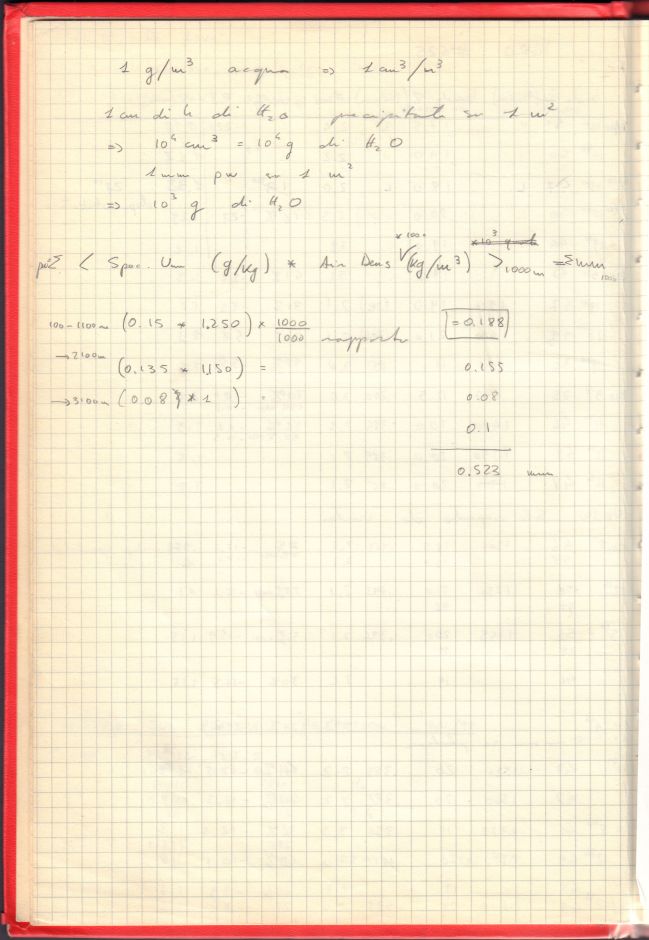 1 g/m³ acqua => 1 cm³/m³
1 cm di h di H₂O precipitata su 1 m²
=> 10⁴ cm³ = 10⁴ g di H₂O
1 mm pw su 1 m²
=> 10³ g di H₂O
* 1000
< Spec. Um (g/kg) * Air Dens (kg/m³) >1000m = Σmm
100-1100m (0.15 * 1.250) * 1000/1000 rapporto = 0.188
→2100m (0.135 * 1.150) = 0.155
→3100m (0.08 * 1 ) = 0.08
0.1
0.523 mm